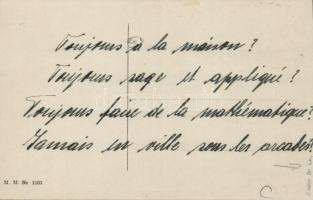 Toujours à la maison?
Toujours sage et appliqué?
Toujours faire de la mathématique?
Jamais en ville sous les arcades?
M. M. Nr 1103